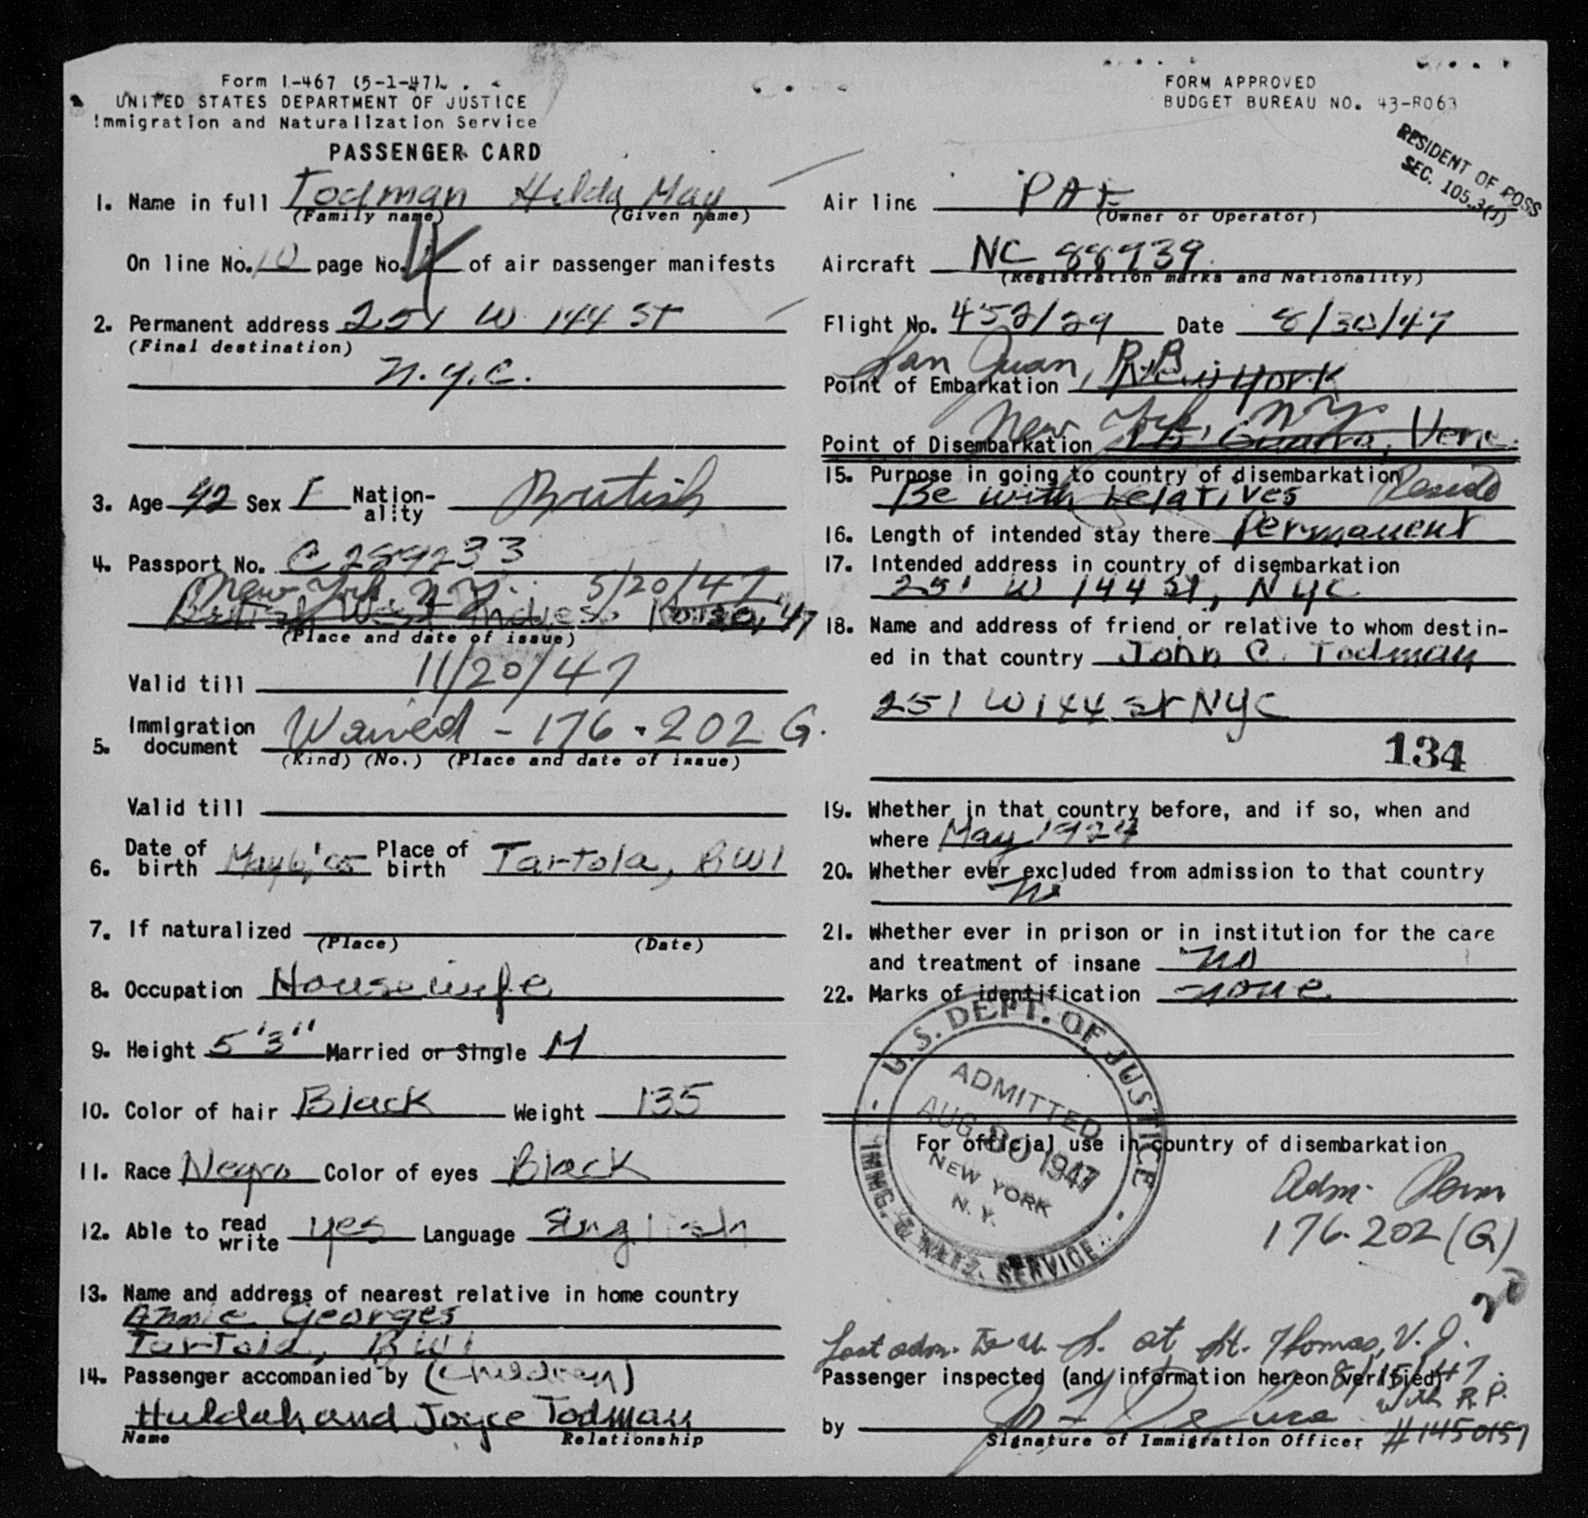 Form I-467 (5-1-47)
UNITED STATES DEPARTMENT OF JUSTICE
Immigration and Naturalization Service
PASSENGER CARD
FORM APPROVED
BUDGET BUREAU NO. 43-R063
RESIDENT OF POSS
SEC. 105.3(J)
1. Name in full Todman Hilda May
(Family name) (Given name)
On line No. 10 page No. of air passenger manifests
2. Permanent address 251 W 144 St
(Final destination)
N.Y.C.
3. Age 42 Sex F Nation-ality British
4. Passport No. C 289233
New York N.Y. 5/20/47
British West Indies
(Place and date of issue)
Valid till 11/20/47
5. Immigration document Waived - 176.202 G.
(Kind) (No.) (Place and date of issue)
Valid till
6. Date of birth May 6, '05 Place of birth Tartola, BWI
7. If naturalized
(Place) (Date)
8. Occupation Housewife
9. Height 5'3" Married or Single M
10. Color of hair Black Weight 135
11. Race Negro Color of eyes Black
12. Able to read write yes Language English
13. Name and address of nearest relative in home country
Annie Georges
Tartola, BWI
14. Passenger accompanied by (Children)
Huldah and Joyce Todman
Name Relationship
Air line PAE
(Owner or Operator)
Aircraft NC 88939
(Registration marks and Nationality)
Flight No. 452/29 Date 8/30/47
San Juan, P.R.
Point of Embarkation New York
New York, N.Y.
Point of Disembarkation La Guaira, Vene.
15. Purpose in going to country of disembarkation Reside
Be with relatives
16. Length of intended stay there Permanent
17. Intended address in country of disembarkation
251 W 144 St, NYC
18. Name and address of friend or relative to whom destin-
ed in that country John C. Todman
251 W 144 St NYC
134
19. Whether in that country before, and if so, when and
where May 1924
20. Whether ever excluded from admission to that country
No
21. Whether ever in prison or in institution for the care
and treatment of insane No
22. Marks of identification none
U.S. DEPT. OF JUSTICE
ADMITTED
AUG 30 1947
NEW YORK
N.Y.
IMMG. & NATZ. SERVICE
For official use in country of disembarkation
Adm. Perm
176.202 (G)
Last adm. to U.S. at St. Thomas, V.I.
8/15/47.
Passenger inspected (and information hereon verified)
with R.P.
#1450157
by
Signature of Immigration Officer